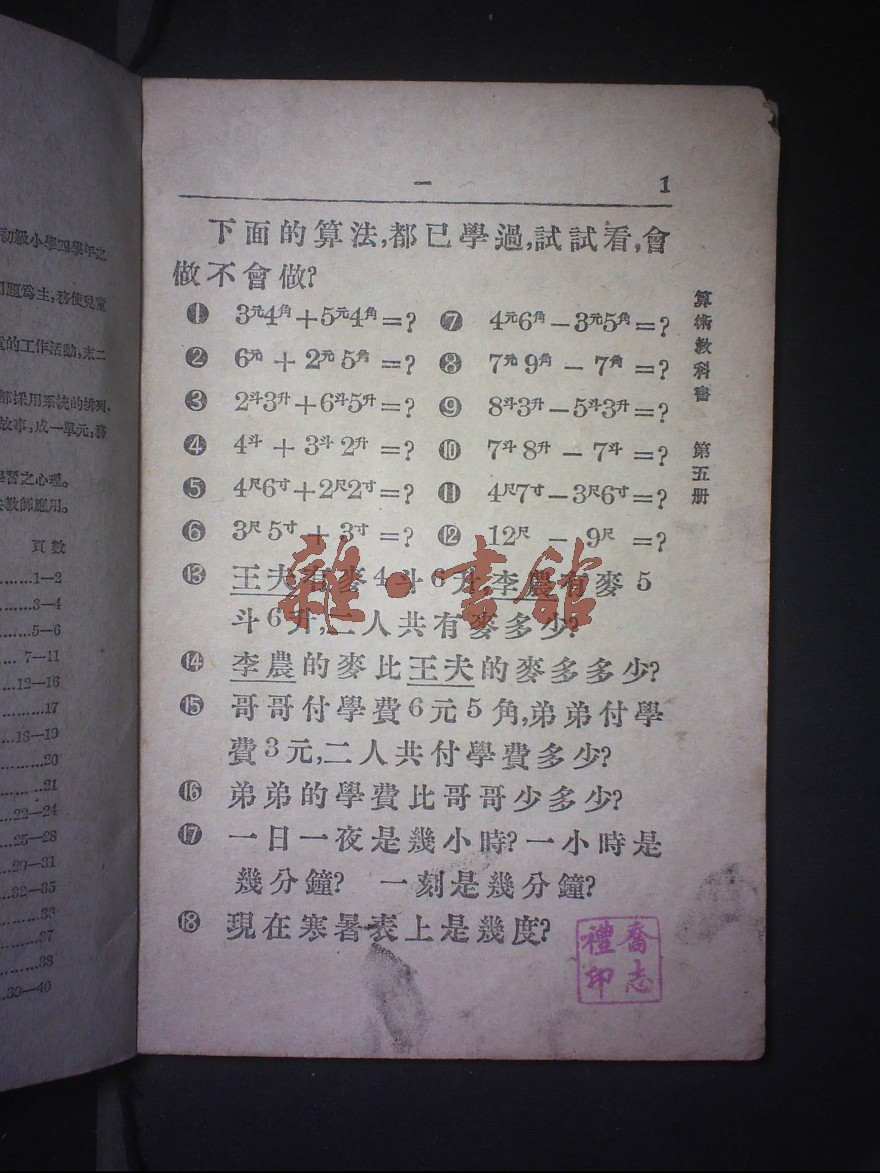 一 1
下面的算法,都已學過,試試看,會
做不會做?
❶ 3元4角+5元4角=? ❼ 4元6角-3元5角=?
❷ 6元 + 2元 5角 =? ❽ 7元 9角 - 7角 =?
❸ 2斗3升+6斗5升=? ❾ 8斗3升-5斗3升=?
❹ 4斗 + 3斗 2升 =? ❿ 7斗 8升 - 7斗 =?
❺ 4尺6寸+2尺2寸=? ⓫ 4尺7寸-3尺6寸=?
❻ 3尺 5寸 + 3寸 =? ⓬ 12尺 - 9尺 =?
⓭ 王夫有麥4斗6升,李農有麥5
斗6升,二人共有麥多少?
⓮ 李農的麥比王夫的麥多多少?
⓯ 哥哥付學費6元5角,弟弟付學
費3元,二人共付學費多少?
⓰ 弟弟的學費比哥哥少多少?
⓱ 一日一夜是幾小時?一小時是
幾分鐘? 一刻是幾分鐘?
⓲ 現在寒暑表上是幾度?
算術教科書 第五册
喬志
禮印
雜·書館
初級小學四學年之
題爲主,務使兒童
的工作活動,末二
部採用系統的排列、
故事,成一單元,務
學習之心理。
教師應用。
頁數
........1—2
........3—4
........5—6
... 7—11
...12—16
.........17
...18—19
.........20
.........21
...22—24
...25—28
...29—31
...32—35
.........36
.........37
.........38
...39—40